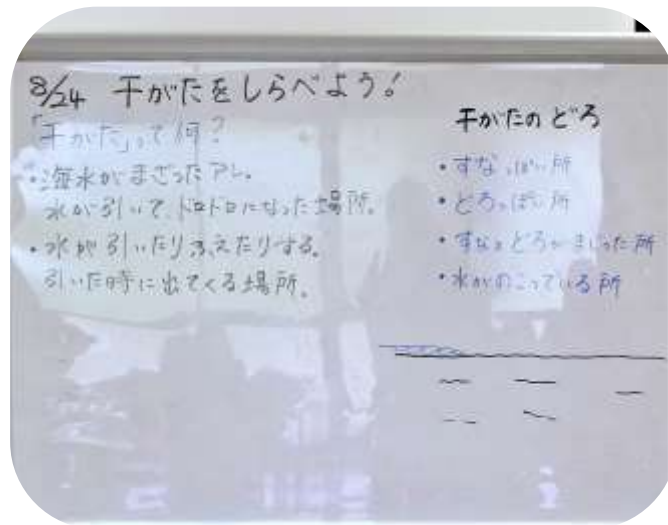 8/24 干がたをしらべよう!
「干がた」って何?
・海水がまざったアレ。
水が引いて、ドロドロになった場所。
・水が引いたりふえたりする。
引いた時に出てくる場所。
干がたの どろ
・すなっぽい所
・どろっぽい所
・すなとどろがまじった所
・水がのこっている所